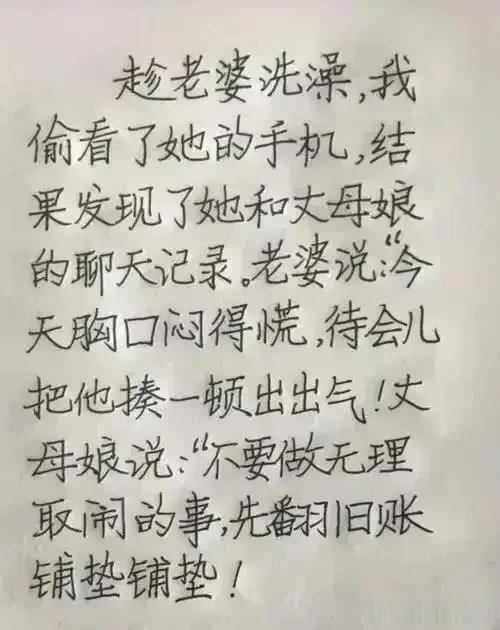 趁老婆洗澡，我
偷看了她的手机，结
果发现了她和丈母娘
的聊天记录。老婆说："今
天胸口闷得慌，待会儿
把他揍一顿出出气！丈
母娘说："不要做无理
取闹的事，先翻旧账
铺垫铺垫！